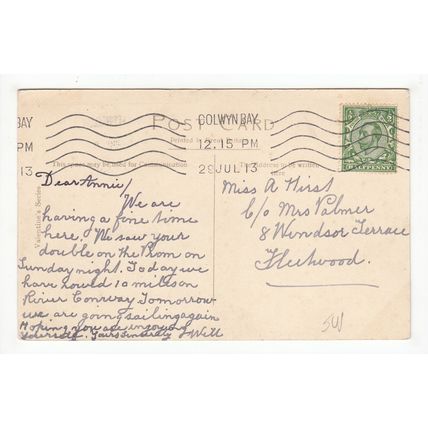 BAY
PM
13
COLWYN BAY
12.15 PM
29 JUL 13
POST CARD
Printed in Great Britain
This space may be used for Communication
The Address to be written
Here
Valentine's Series
HALFPENNY
Dear Annie/
We are
having a fine time
here. We saw your
double on the Prom on
Sunday night. Today we
have rowed 10 miles on
River Conway Tomorrow
we are going sailing again
Hoping you are enjoying
yourself. Yours Sincerely Will
Miss A Hirst
C/o Mrs Palmer
8 Windsor Terrace
Fleetwood.